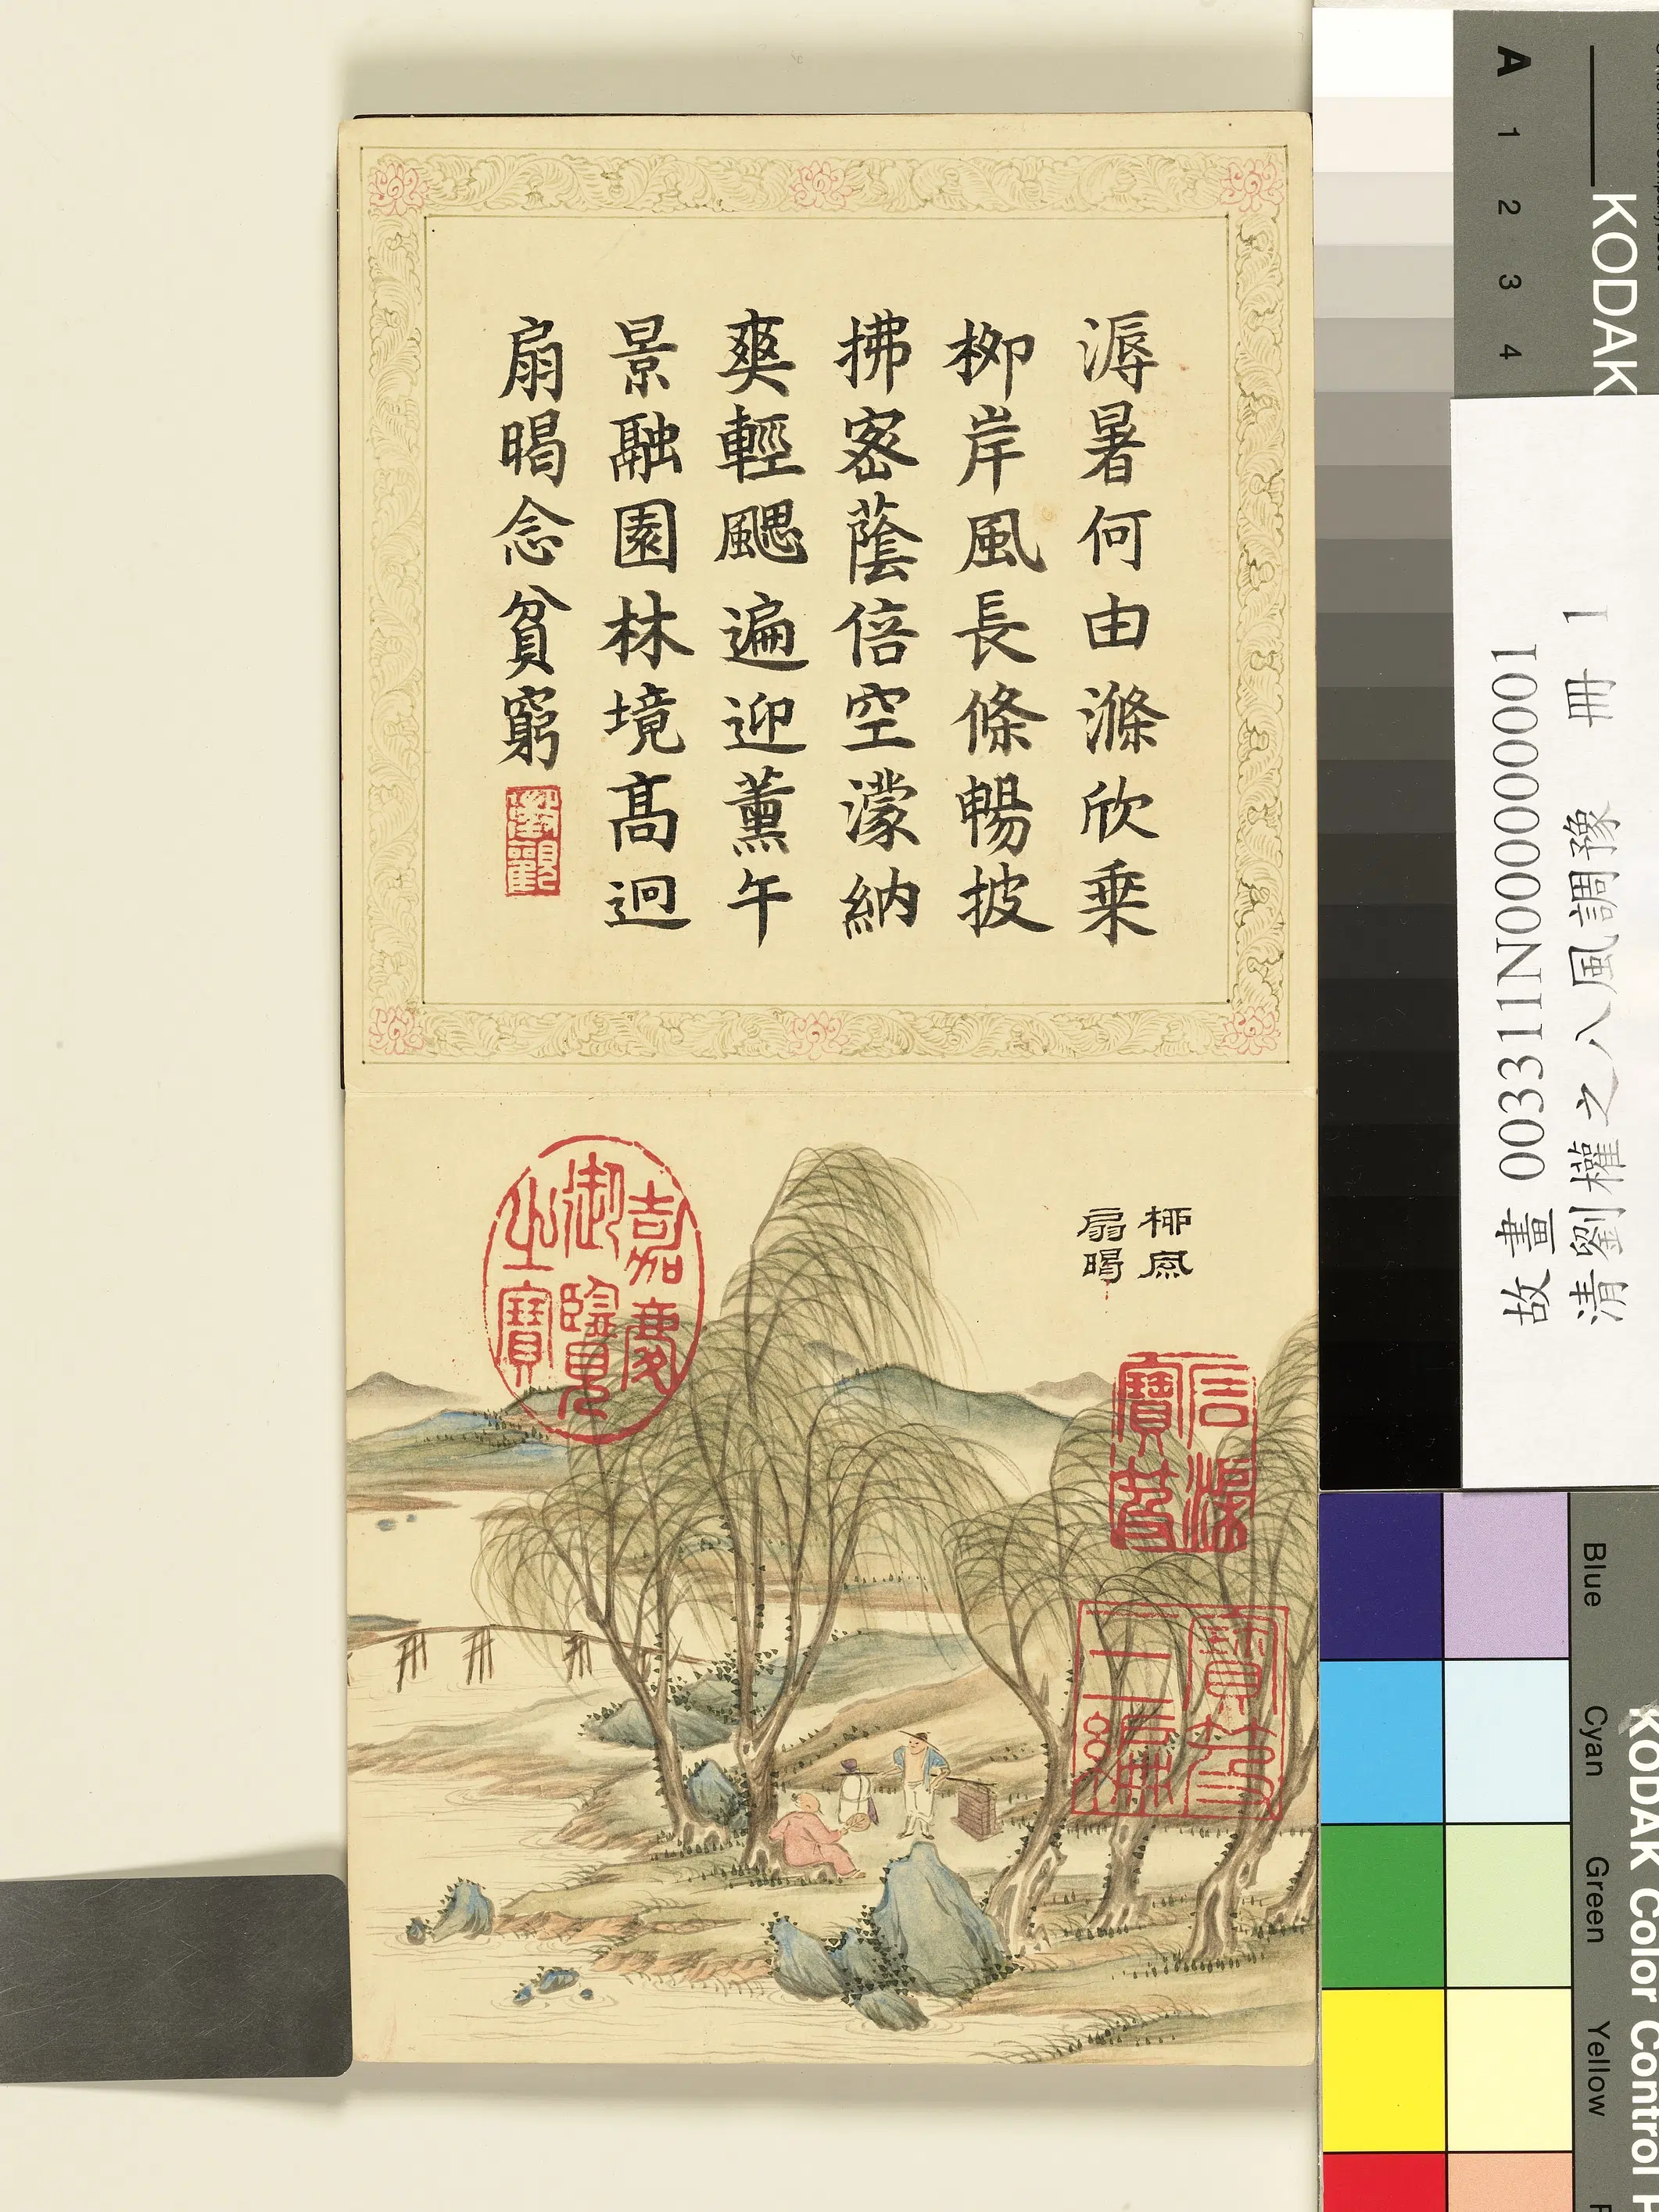 溽暑何由滌欣乗
柳岸風長條暢披
拂密蔭倍空濛納
爽輕颸遍迎薰午
景融園林境高迥
扇暍念貧窮
柳風
扇暍
嘉慶
御覽
之寶
石渠
寶笈
寶笈
三編
故畫 003311N000000001
清劉權之八風調豫 冊 1
A 1 2 3 4
KODAK
KODAK Color Control P
Blue
Cyan
Green
Yellow